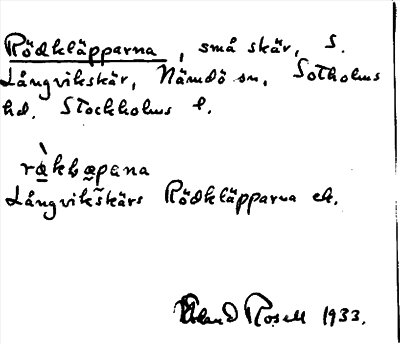 Rödkläpparna, små skär, S.
Långvikskär, Nämdö sn, Sotholms
hd. Stockholms l.
Långvikskärs Rödkläpparna ek.
Rosell 1933.